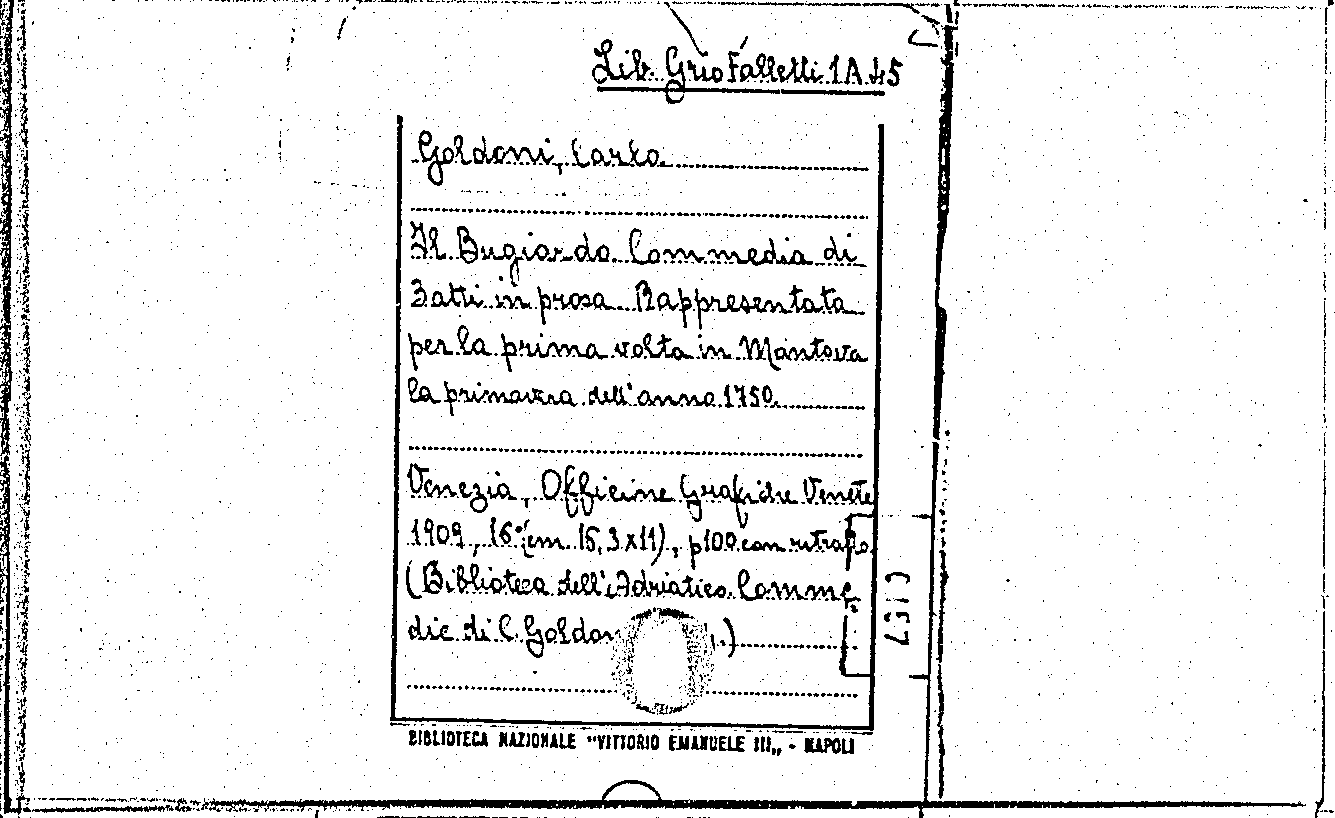 Lib. Grio Falletti 1A 45
Goldoni, Carlo
Il Bugiardo Commedia di
3 atti in prosa. Rappresentata
per la prima volta in Mantova
la primavera dell'anno 1750.
Venezia, Officine Grafiche Venete
1909, 16° (cm. 15,3x11), p100 con ritratto
(Biblioteca dell'Adriatico. Comme
die di C. Goldon .)
BIBLIOTECA NAZIONALE "VITTORIO EMANUELE III„ - NAPOLI